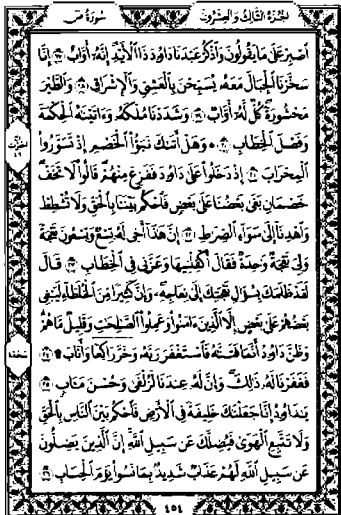 الجزء الثالث والعشرون
سورة ص
ٱصۡبِرۡ عَلَىٰ مَا يَقُولُونَ وَٱذۡكُرۡ عَبۡدَنَا دَاوُۥدَ ذَا ٱلۡأَيۡدِۖ إِنَّهُۥٓ أَوَّابٌ ١٧ إِنَّا
سَخَّرۡنَا ٱلۡجِبَالَ مَعَهُۥ يُسَبِّحۡنَ بِٱلۡعَشِيِّ وَٱلۡإِشۡرَاقِ ١٨ وَٱلطَّيۡرَ
مَحۡشُورَةٗۖ كُلّٞ لَّهُۥٓ أَوَّابٞ ١٩ وَشَدَدۡنَا مُلۡكَهُۥ وَءَاتَيۡنَٰهُ ٱلۡحِكۡمَةَ
وَفَصۡلَ ٱلۡخِطَابِ ٢٠ وَهَلۡ أَتَىٰكَ نَبَؤُاْ ٱلۡخَصۡمِ إِذۡ تَسَوَّرُواْ
ٱلۡمِحۡرَابَ ٢١ إِذۡ دَخَلُواْ عَلَىٰ دَاوُۥدَ فَفَزِعَ مِنۡهُمۡۖ قَالُواْ لَا تَخَفۡۖ
خَصۡمَانِ بَغَىٰ بَعۡضُنَا عَلَىٰ بَعۡضٖ فَٱحۡكُم بَيۡنَنَا بِٱلۡحَقِّ وَلَا تُشۡطِطۡ
وَٱهۡدِنَآ إِلَىٰ سَوَآءِ ٱلصِّرَٰطِ ٢٢ إِنَّ هَٰذَآ أَخِي لَهُۥ تِسۡعٞ وَتِسۡعُونَ نَعۡجَةٗ
وَلِيَ نَعۡجَةٞ وَٰحِدَةٞ فَقَالَ أَكۡفِلۡنِيهَا وَعَزَّنِي فِي ٱلۡخِطَابِ ٢٣ قَالَ
لَقَدۡ ظَلَمَكَ بِسُؤَالِ نَعۡجَتِكَ إِلَىٰ نِعَاجِهِۦۖ وَإِنَّ كَثِيرٗا مِّنَ ٱلۡخُلَطَآءِ لَيَبۡغِي
بَعۡضُهُمۡ عَلَىٰ بَعۡضٍ إِلَّا ٱلَّذِينَ ءَامَنُواْ وَعَمِلُواْ ٱلصَّٰلِحَٰتِ وَقَلِيلٞ مَّا هُمۡۗ
وَظَنَّ دَاوُۥدُ أَنَّمَا فَتَنَّٰهُ فَٱسۡتَغۡفَرَ رَبَّهُۥ وَخَرَّۤ رَاكِعٗاۤ وَأَنَابَ۩ ٢٤
فَغَفَرۡنَا لَهُۥ ذَٰلِكَۖ وَإِنَّ لَهُۥ عِندَنَا لَزُلۡفَىٰ وَحُسۡنَ مَـَٔابٖ ٢٥
يَٰدَاوُۥدُ إِنَّا جَعَلۡنَٰكَ خَلِيفَةٗ فِي ٱلۡأَرۡضِ فَٱحۡكُم بَيۡنَ ٱلنَّاسِ بِٱلۡحَقِّ
وَلَا تَتَّبِعِ ٱلۡهَوَىٰ فَيُضِلَّكَ عَن سَبِيلِ ٱللَّهِۚ إِنَّ ٱلَّذِينَ يَضِلُّونَ
عَن سَبِيلِ ٱللَّهِ لَهُمۡ عَذَابٞ شَدِيدُۢ بِمَا نَسُواْ يَوۡمَ ٱلۡحِسَابِ ٢٦
سجدة
٤٥٤